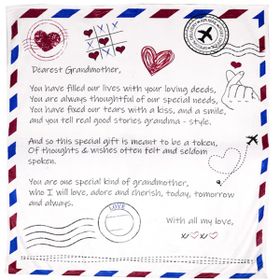 Dearest Grandmother,
You have filled our lives with your loving deeds,
You are always thoughtful of our special needs,
You have fixed our tears with a kiss, and a smile,
and you tell real good stories grandma - style.
And so this special gift is meant to be a token,
Of thoughts & wishes often felt and seldom
spoken.
You are one special kind of grandmother,
who I will love, adore and cherish, today, tomorrow
and always.
With all my love,
LOVE